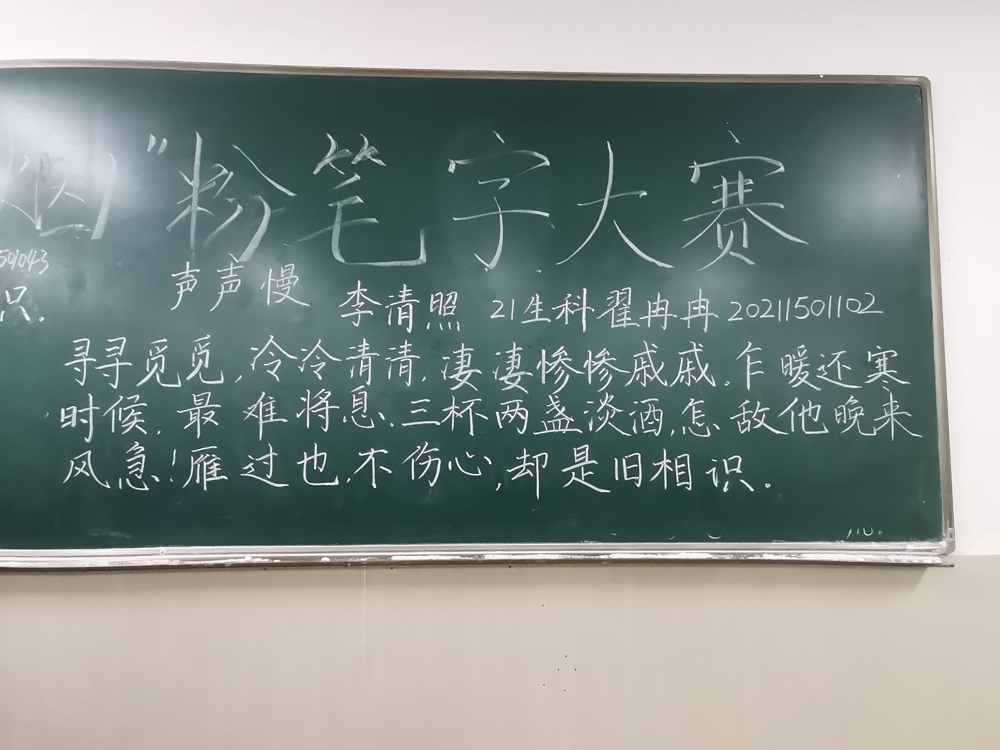 "粉笔字大赛
501043
识.
声声慢 李清照 21生科翟冉冉 20211501102
寻寻觅觅,冷冷清清,凄凄惨惨戚戚.乍暖还寒
时候.最难将息.三杯两盏淡酒,怎敌他晚来
风急!雁过也,不伤心,却是旧相识.